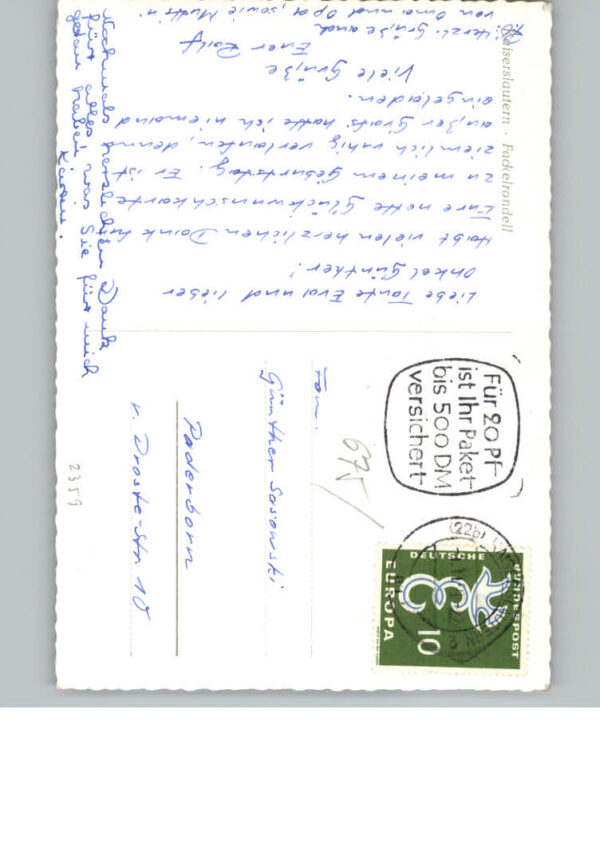 Kaiserslautern · Fackelrondell
Liebe Tante Eva und lieber
Onkel Günther!
Habt vielen herzlichen Dank für
Eure nette Glückwunschkarte
zu meinem Geburtstag. Er ist
ziemlich ruhig verlaufen, denn
außer hatte ich niemand
eingeladen.
Viele Grüße
Euer Ralf
Herzl. Grüße auch
von Oma und Opa, sowie Mutti.
Nochmals herzlichen Dank
für alles was Sie für mich
getan haben.
Für 20 Pf
ist Ihr Paket
bis 500 DM
versichert
(22b)
DEUTSCHE
BUNDESPOST
EUROPA
10
Fam.
Günther Sasowski
Paderborn
v. Droste-Str. 10
675/
2359